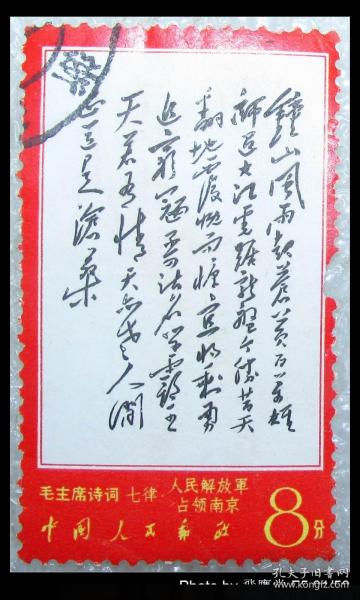 鐘山風雨起蒼黄百万雄
師過大江虎踞龍盤今勝昔天
翻地覆慨而慷宜将剩勇
追窮寇不可沽名学霸王
天若有情天亦老人间
正道是滄桑
毛主席诗词 七律·人民解放軍
占领南京
8分
中国人民邮政
Photo by
孔夫子旧书网